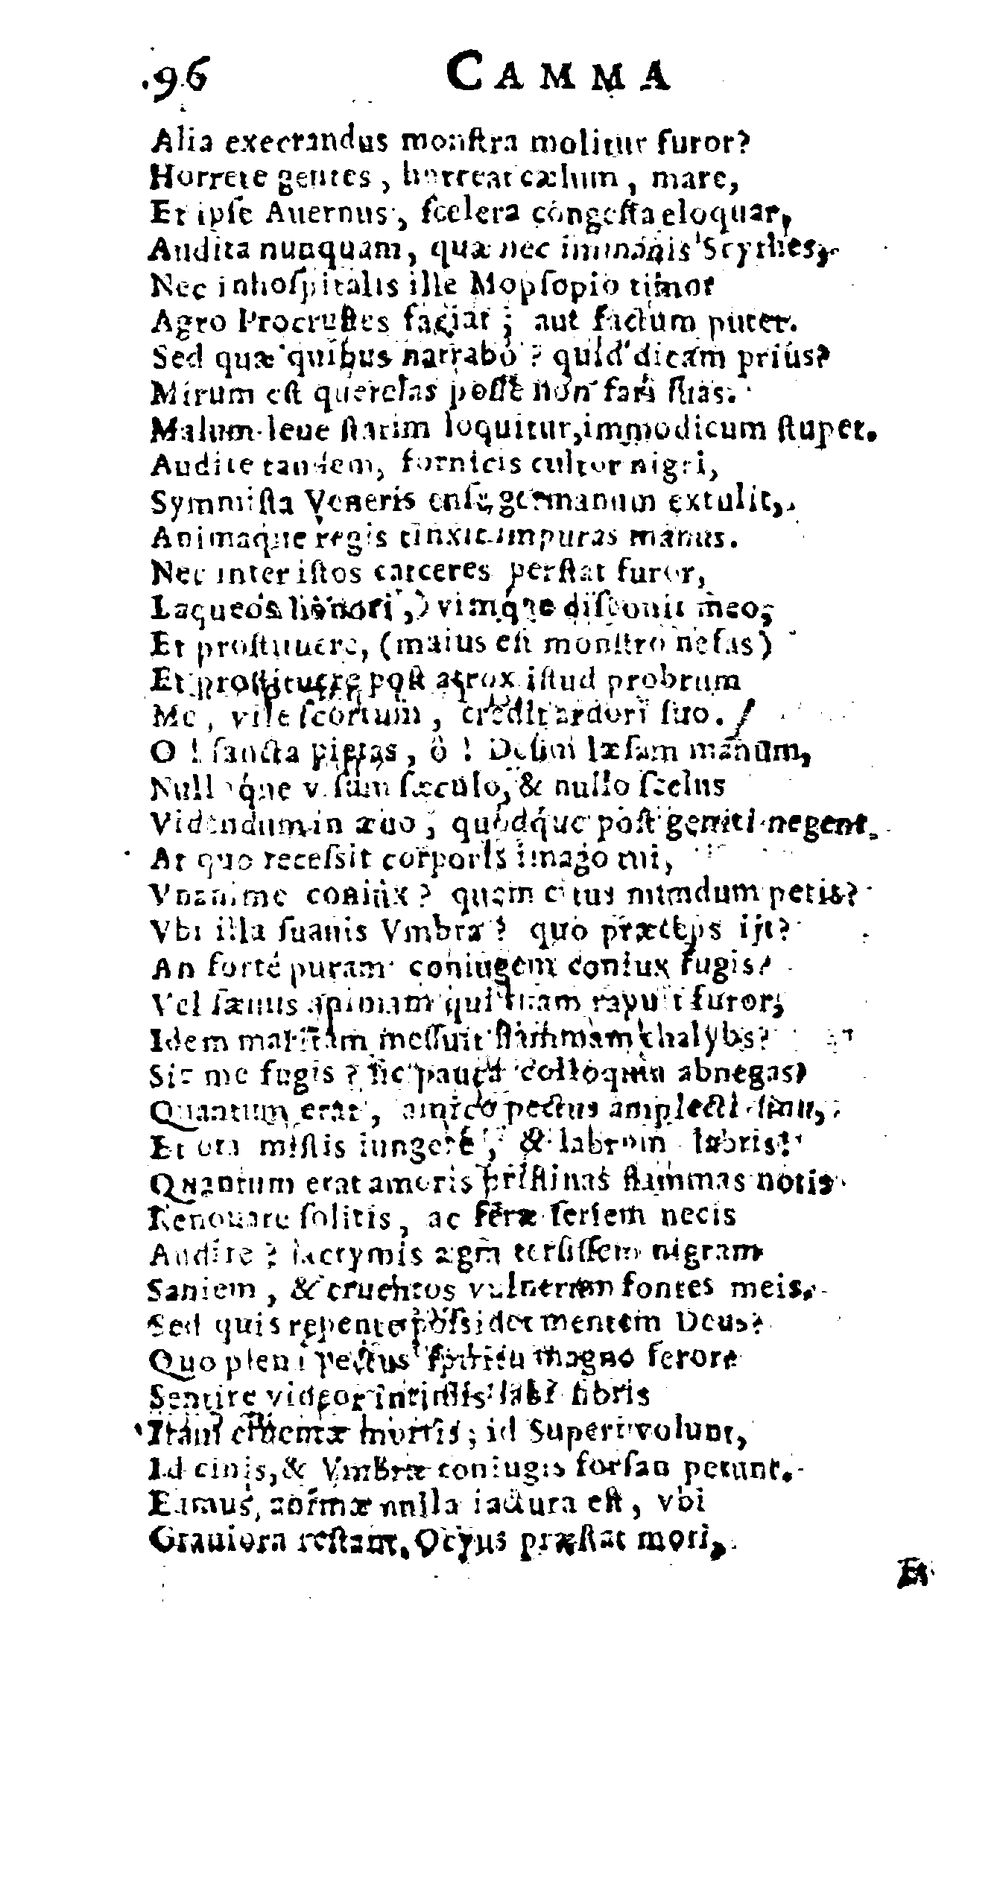 96 CAMMA
Alia execrandus monſtra molitur furor?
Horrete gentes, horreat cælum, mare,
Et ipſe Auernus, ſcelera cóngeſta eloquar,
Audita nunquam, quæ nec immanis Scythes,
Nec inhoſpitalis ille Mopſopio timor
Agro Procruſtes faciat; aut factum putet.
Sed quæ quibus narrabo? quid dicam priùs?
Mirum eſt querelas poſſe non fari ſuas.
Malum leue ſtatim loquitur, immodicum ſtupet.
Audite tandem, fornicis cultor nigri,
Symmiſta Veneris enſe germanum extulit,
Animaque regis tinxit impuras manus.
Nec inter iſtos carceres perſtat furor,
Laqueos honori, vimque diſponit meo,
Et proſtituere, (maius eſt monſtro nefas)
Et proſtituere poſt atrox iſtud probrum
Me, vile ſcortum, credit ardori ſuo.
O! ſancta pietas, ô! Deûm læſam manum,
Nulloque viſum ſæculo, & nullo ſcelus
Videndum in æuo, quodque poſt geniti negent.
At quo receſſit corporis imago mi,
Vnanime coniux? quem citus mundum petis?
Vbi illa ſuauis Vmbra? quo præceps ijt?
An forté puram coniugem coniux fugis?
Vel ſæuus animam qui tuam rapuit furor,
Idem maritam meſſuit flammam chalybs?
Sic me fugis? ſic pauca colloquia abnegas?
Quantum erat, amico pectus amplecti ſinu,
Et ora miſtis iungere, & labrum labris!
Quantum erat amoris priſtinas flammas notis
Renouare ſolitis, ac feræ ſeriem necis
Audire? lacrymis ægra terſiſſem nigram
Saniem, & cruentos vulnerum fontes meis.
Sed quis repente poſsidet mentem Deus?
Quo pleni pectus ſpiritu magno ferore
Sentire videor intimis labi fibris
Itan' mortis; id Superi volunt,
Id cinis, & Vmbræ coniugis forſan petunt.
Eamus, animæ nulla iactura eſt, vbi
Grauiora reſtant. Ocyus præſtat mori,
Et